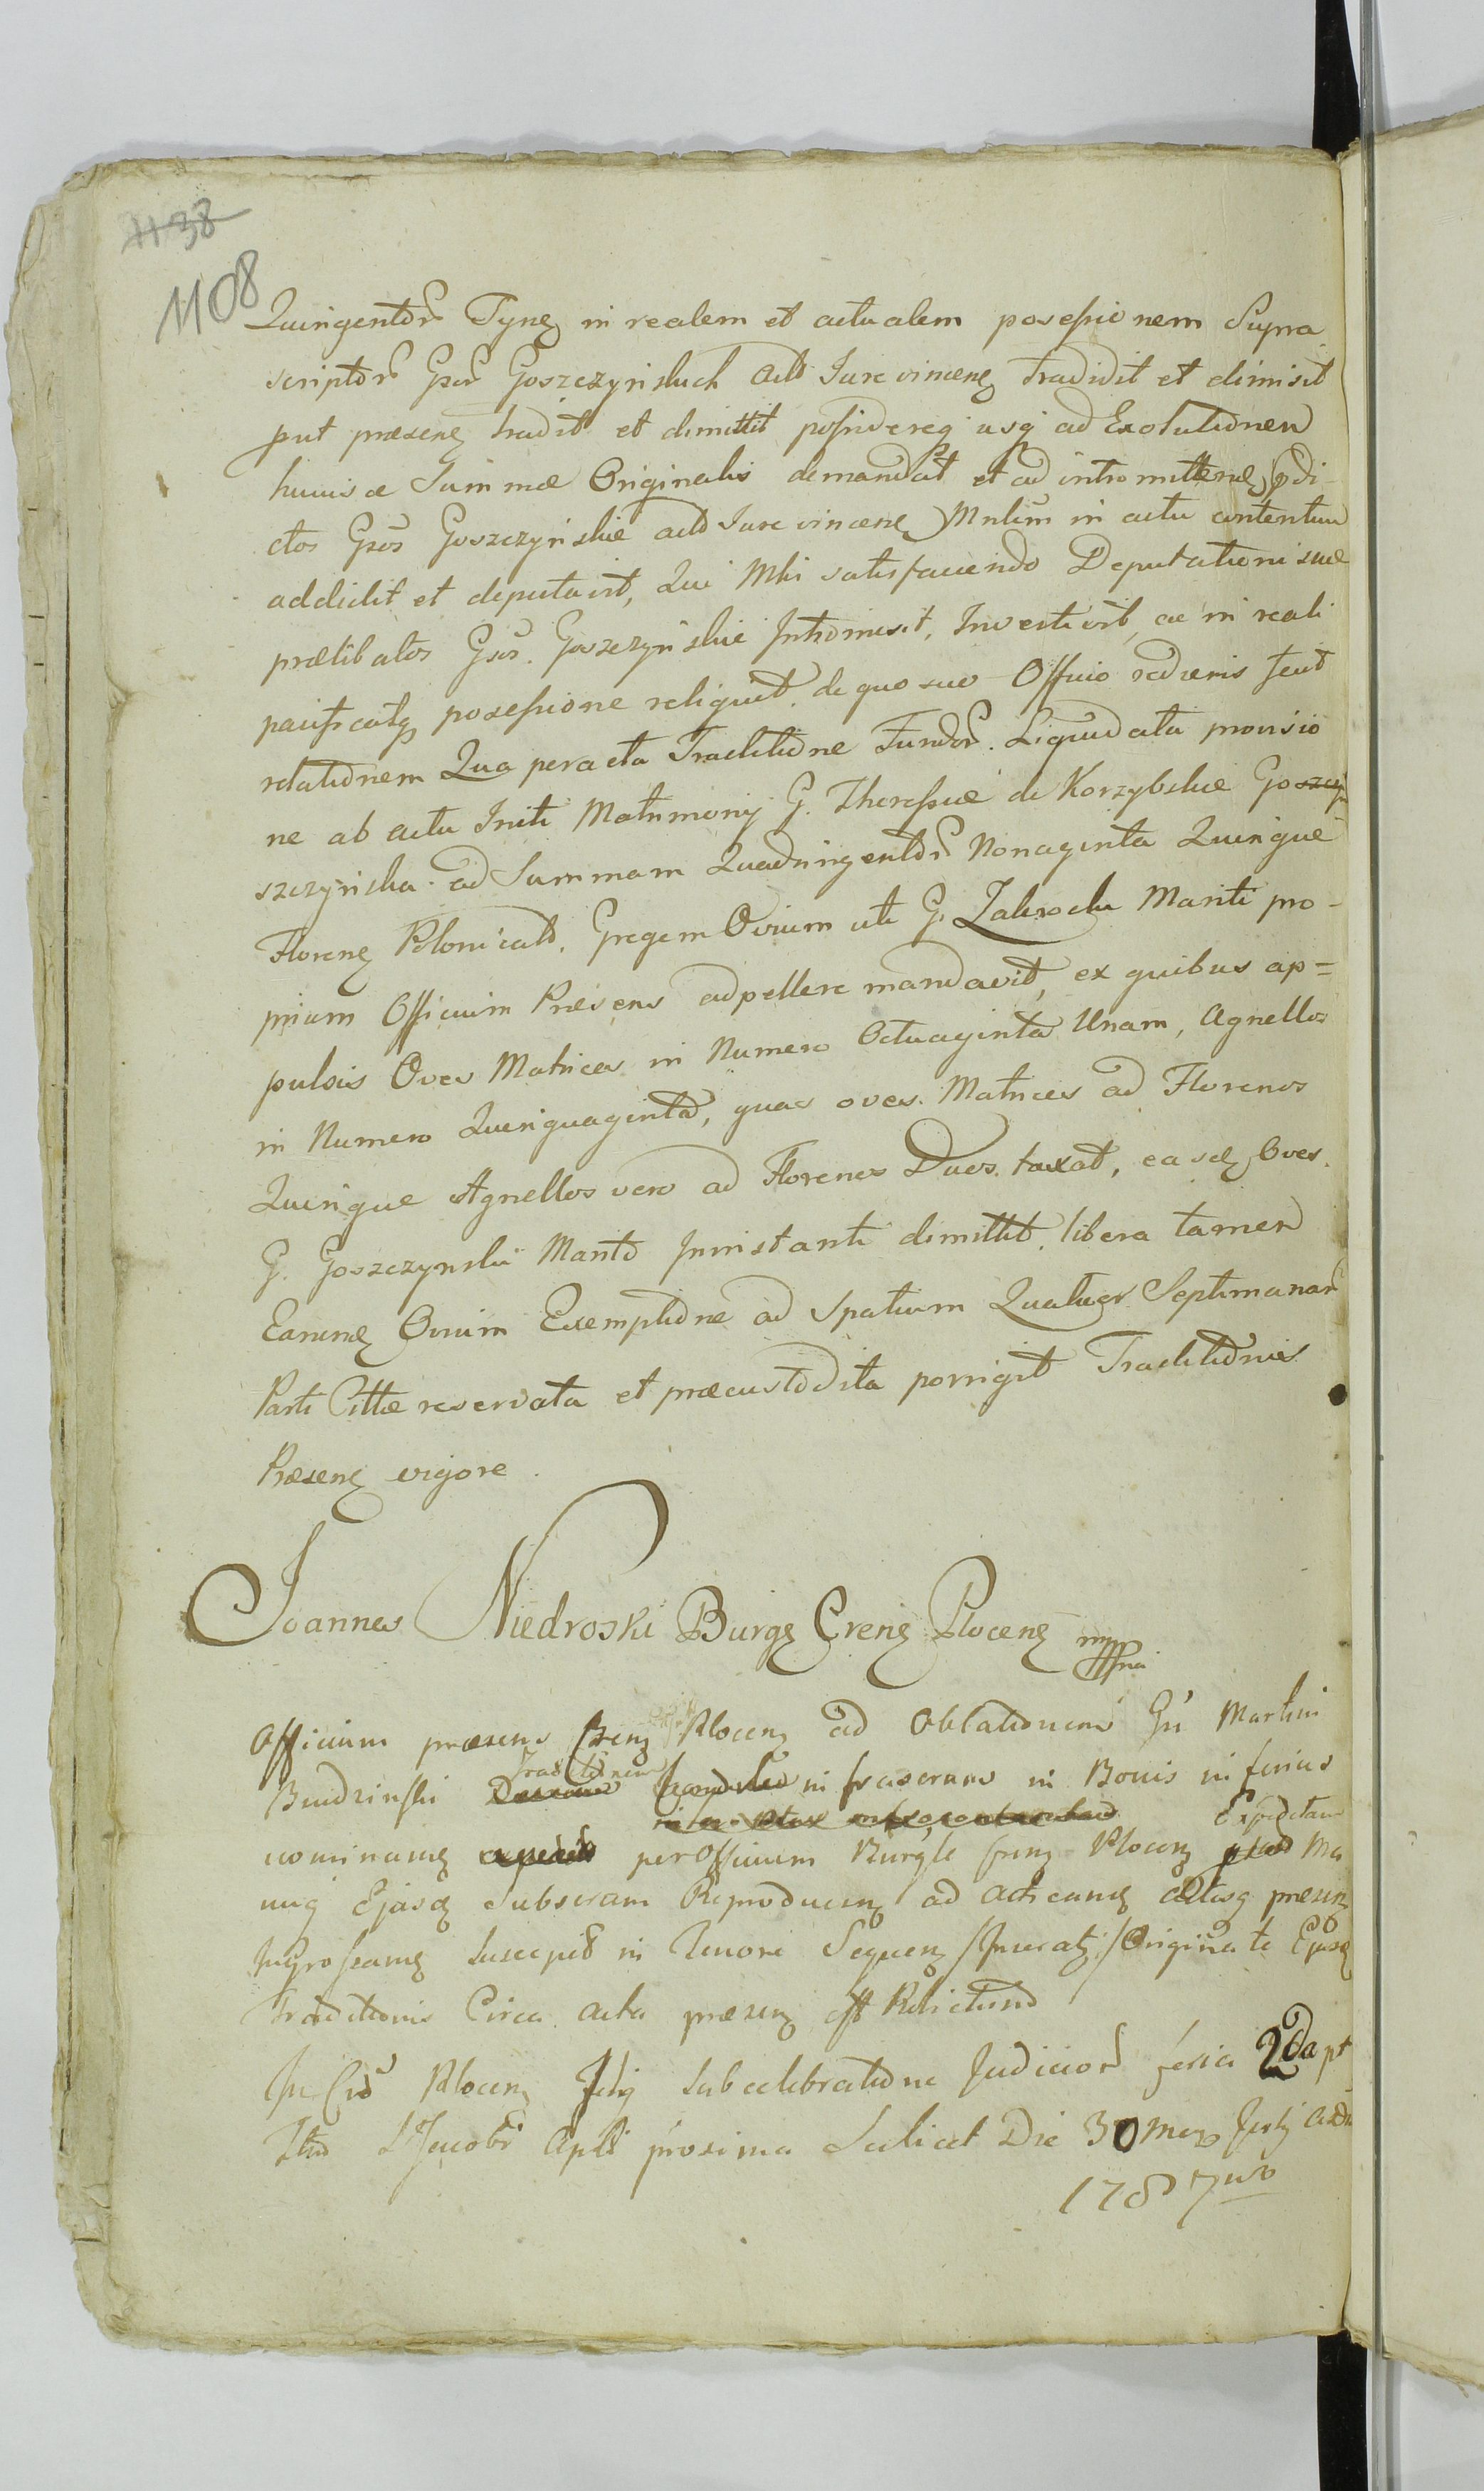 1138
1108
Quingentor Tynę in realem et actualem posessionem Supra
scriptor Gsor Goszczynskich actb Jure vincenę Tradidit et dimisit
put præsenę tradit et dimittit possidereq usq ad Exolutionem
huiusce Summæ Originalis demandat et ad intromittenę pdi-
ctos Gsos Goszczynskie actb Jure vincenę Mnlem in actu contentum
addidit et deputavit, Qui Mlis satisfaciendo Deputationi suæ
prælibatos Gsos. Goszczynskie Intromisit, Investivit, ac in reali
pacificatq posessione reliquit, de quo suo Officio redivnis fecit
relationem Qua peracta Traditione Fundor. Liquidata provisio
ne ab actu Initi Matrimonij G. Theressiæ de Korzybskie Goszczy
szczynska ad Summam Quadringentor Nonaginta Quinque
Florenę Polonicalb. Gregem Ovium uti G. Zakrocki Mariti pro-
prium Officium Præsens adpellere mandavit, ex quibus ap=
pulsis Oves Matrices in Numero Octuaginta Unam, Agnellos
in Numero Quinquaginta, quas oves Matrices ad Florenos
Quinque Agnellos vero ad Florenos Duos taxat, easdę Oves
G. Goszczynskii Marito Innistanti dimittit, libera tamen
Earumę Ovium Exemptione ad Spatium Quatuor Septimanar
Parti Cittæ reservata et præcustodita porrigit Traditionis
Præsenę vigore.
Joannes Niedroski Burgę Crenę Plocenę mppria
Officium præsens Crenę Plocenę ad Oblationem Gsi Martini
Budzinski Traditionem infrascram in Bonis inferius
Expeditam
nominanę per Officium Burgle Crenę Plocenę Ma
nuq Ejusdę Subscram Reproducenę ad acticanę actisq præsenę
Ingrossanę suscepit in Tenore Sequenę /Inserat:/ Originale Ejusdę
Traditionis Circa acta præsenę est Relictum
In Cro Plocenę Feliq sub celebratione Judicior feria 2da pt
Ftm S Jacobi Apli proxima Scilicet Die 30 Mens Julij Ando
1787mo